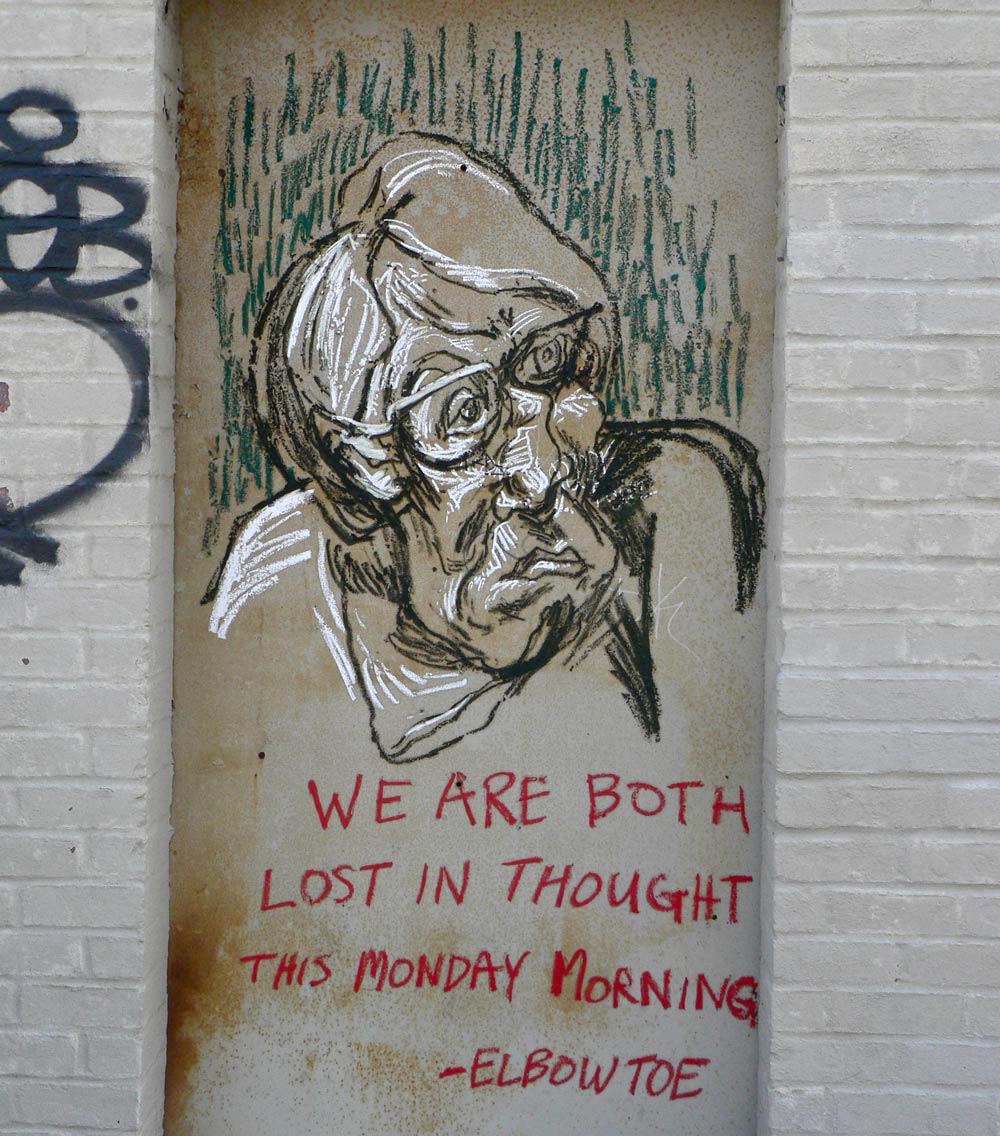 WE ARE BOTH
LOST IN THOUGHT
THIS MONDAY MORNING
-ELBOW TOE